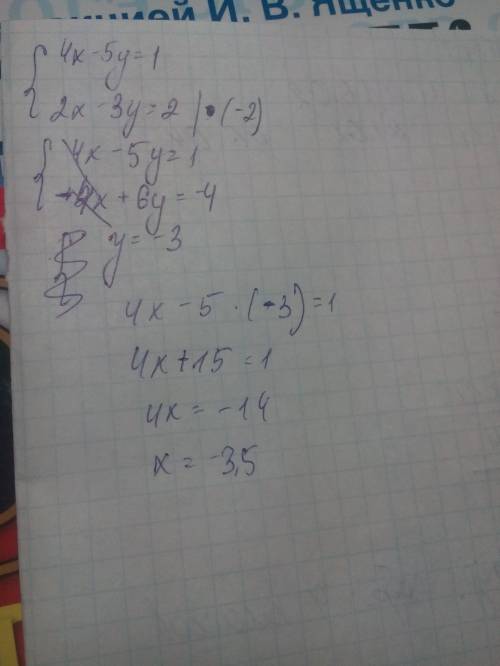 ицией И. В. Ященко
4x-5y=1
2x-3y=2 |•(-2)
4x-5y=1
-4x+6y=-4
y=-3
4x-5·(-3)=1
4x+15=1
4x=-14
x=-3,5